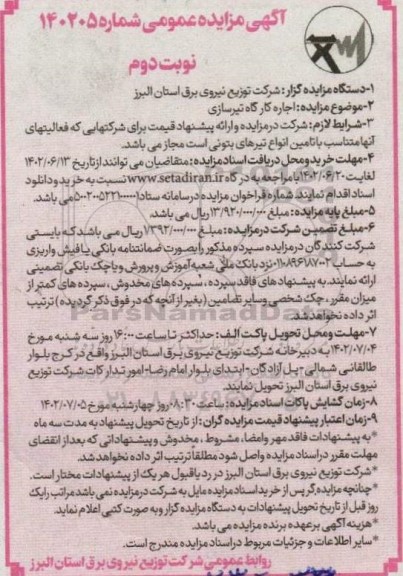 آگهی مزایده عمومی شماره ۱۴۰۲۰۵
نوبت دوم
۱-دستگاه مزایده گزار: شرکت توزیع نیروی برق استان البرز
۲-موضوع مزایده: اجاره کارگاه تیرسازی
۳-شرایط لازم: شرکت در مزایده و ارائه پیشنهاد قیمت برای شرکتهایی که فعالیتهای
آنها متناسب با تامین انواع تیرهای بتونی است مجاز می باشد.
۴-مهلت خرید و محل دریافت اسناد مزایده: متقاضیان می توانند از تاریخ ۱۴۰۲/۰۶/۱۳
لغایت ۱۴۰۲/۰۶/۲۰ با مراجعه به درگاه www.setadiran.ir نسبت به خرید و دانلود
اسناد اقدام نمایند. شماره فراخوان مزایده در سامانه ستاد می باشد.
۵-مبلغ پایه مزایده: مبلغ ۱۳/۹۲۰/۰۰۰/۰۰۰ ریال می باشد.
۶-مبلغ تضمین شرکت در مزایده: مبلغ ریال می باشد که بایستی
شرکت کنندگان در مزایده سپرده مذکور را بصورت ضمانتنامه بانکی یا فیش واریزی
به حساب نزد بانک ملی شعبه آموزش و پرورش و یا چک بانکی تضمینی
ارائه نمایند. به پیشنهادهای فاقد سپرده، سپرده های مخدوش، سپرده های کمتر از
میزان مقرر، چک شخصی و سایر تضامین (بغیر از آنچه که در فوق ذکر گردیده) ترتیب
اثر داده نخواهد شد.
۷-مهلت و محل تحویل پاکت الف: حداکثر تا ساعت ۱۶:۰۰ روز سه شنبه مورخ
۱۴۰۲/۰۷/۰۴ به دبیرخانه شرکت توزیع نیروی برق استان البرز واقع در کرج بلوار
طالقانی شمالی-پل آزادگان-ابتدای بلوار امام رضا-امور تدارکات شرکت توزیع
نیروی برق استان البرز تحویل نمایند.
۸-زمان گشایش پاکات اسناد مزایده: ساعت ۸:۳۰ روز چهارشنبه مورخ ۱۴۰۲/۰۷/۰۵
۹-زمان اعتبار پیشنهاد قیمت مزایده گران: از تاریخ تحویل پیشنهاد به مدت سه ماه
*به پیشنهادات فاقد مهر و امضا، مشروط، مخدوش و پیشنهاداتی که بعد از انقضای
مهلت مقرر در اسناد مزایده واصل شود مطلقا ترتیب اثر داده نخواهد شد.
*شرکت توزیع نیروی برق استان البرز در رد یا قبول هر یک از پیشنهادات مختار است.
*چنانچه مزایده گر پس از خرید اسناد مزایده مایل به شرکت در مزایده نمی باشد مراتب را یک
روز قبل از تاریخ تحویل پیشنهادات به دستگاه مزایده گزار و به صورت کتبی اعلام نماید.
*هزینه آگهی بر عهده برنده مزایده می باشد.
*سایر اطلاعات و جزئیات مربوط در اسناد مزایده مندرج است.
روابط عمومی شرکت توزیع نیروی برق استان البرز